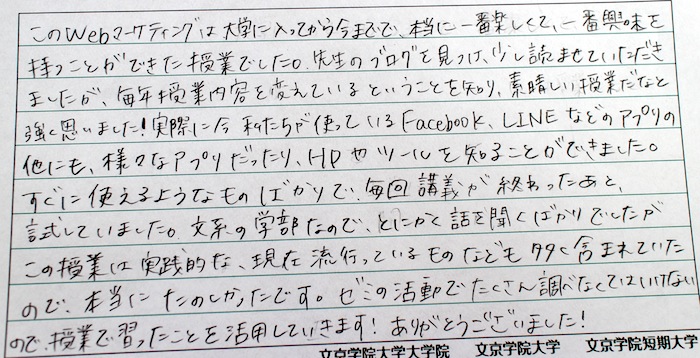 このWebマーケティングは大学に入ってから今までで、本当に一番楽しくて、一番興味を
持つことができた授業でした。先生のブログを見つけ、少し読ませていただき
ましたが、毎年授業内容を変えているということを知り、素晴しい授業だなと
強く思いました！実際に今私たちが使っているFacebook、LINEなどのアプリの
他にも、様々なアプリだったり、HPやツールを知ることができました。
すぐに使えるようなものばかりで、毎回講義が終わったあと、
試していました。文系の学部なので、とにかく話を聞くばかりでしたが
この授業は実践的な、現在流行っているものなども多く含まれていた
ので、本当にたのしかったです。ゼミの活動でたくさん調べなくてはいけない
ので、授業で習ったことを活用していきます！ありがとうございました！
文京学院大学大学院 文京学院大学 文京学院短期大学